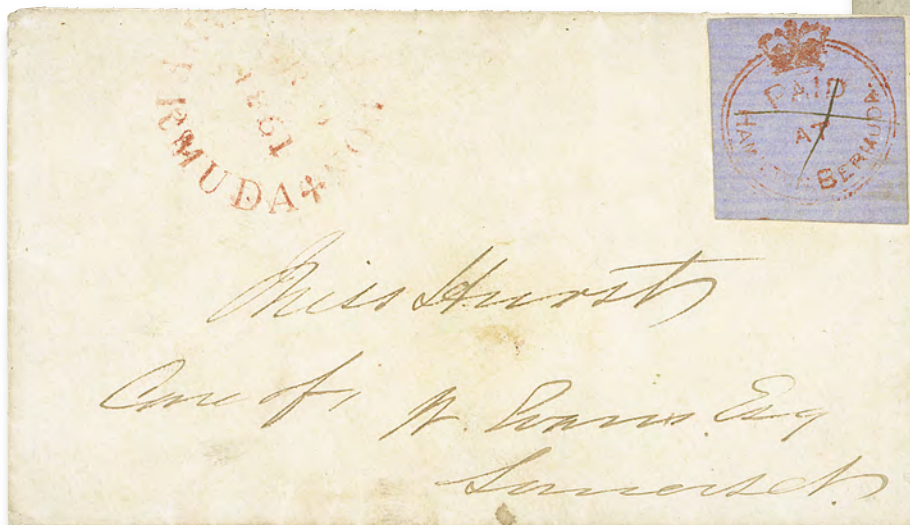 1861
BERMUDA
PAID
AT
HAMILTON BERMUDA
Miss Hurst
Care of, W. Evans. Esq
Somerset.